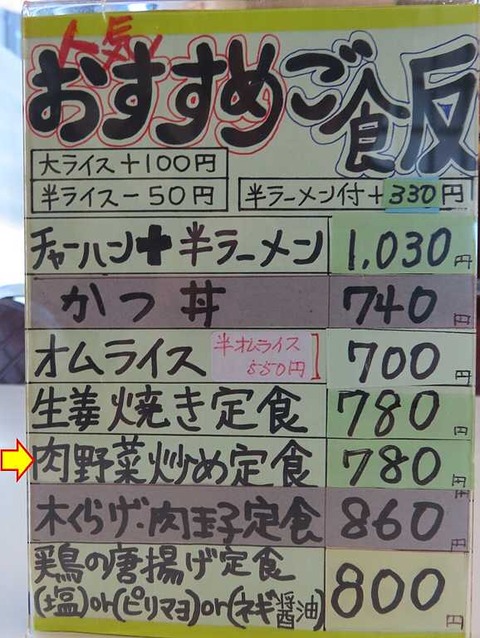 人気!
おすすめご飯食
大ライス+100円
半ライス-50円
半ラーメン付+330円
チャーハン+半ラーメン 1,030円
かつ丼 740円
オムライス 半オムライス 550円 700円
生姜焼き定食 780円
肉野菜炒め定食 780円
木くらげ・肉玉子定食 860円
鶏の唐揚げ定食 800円
(塩)or(ピリマヨ)or(ネギ醤油)